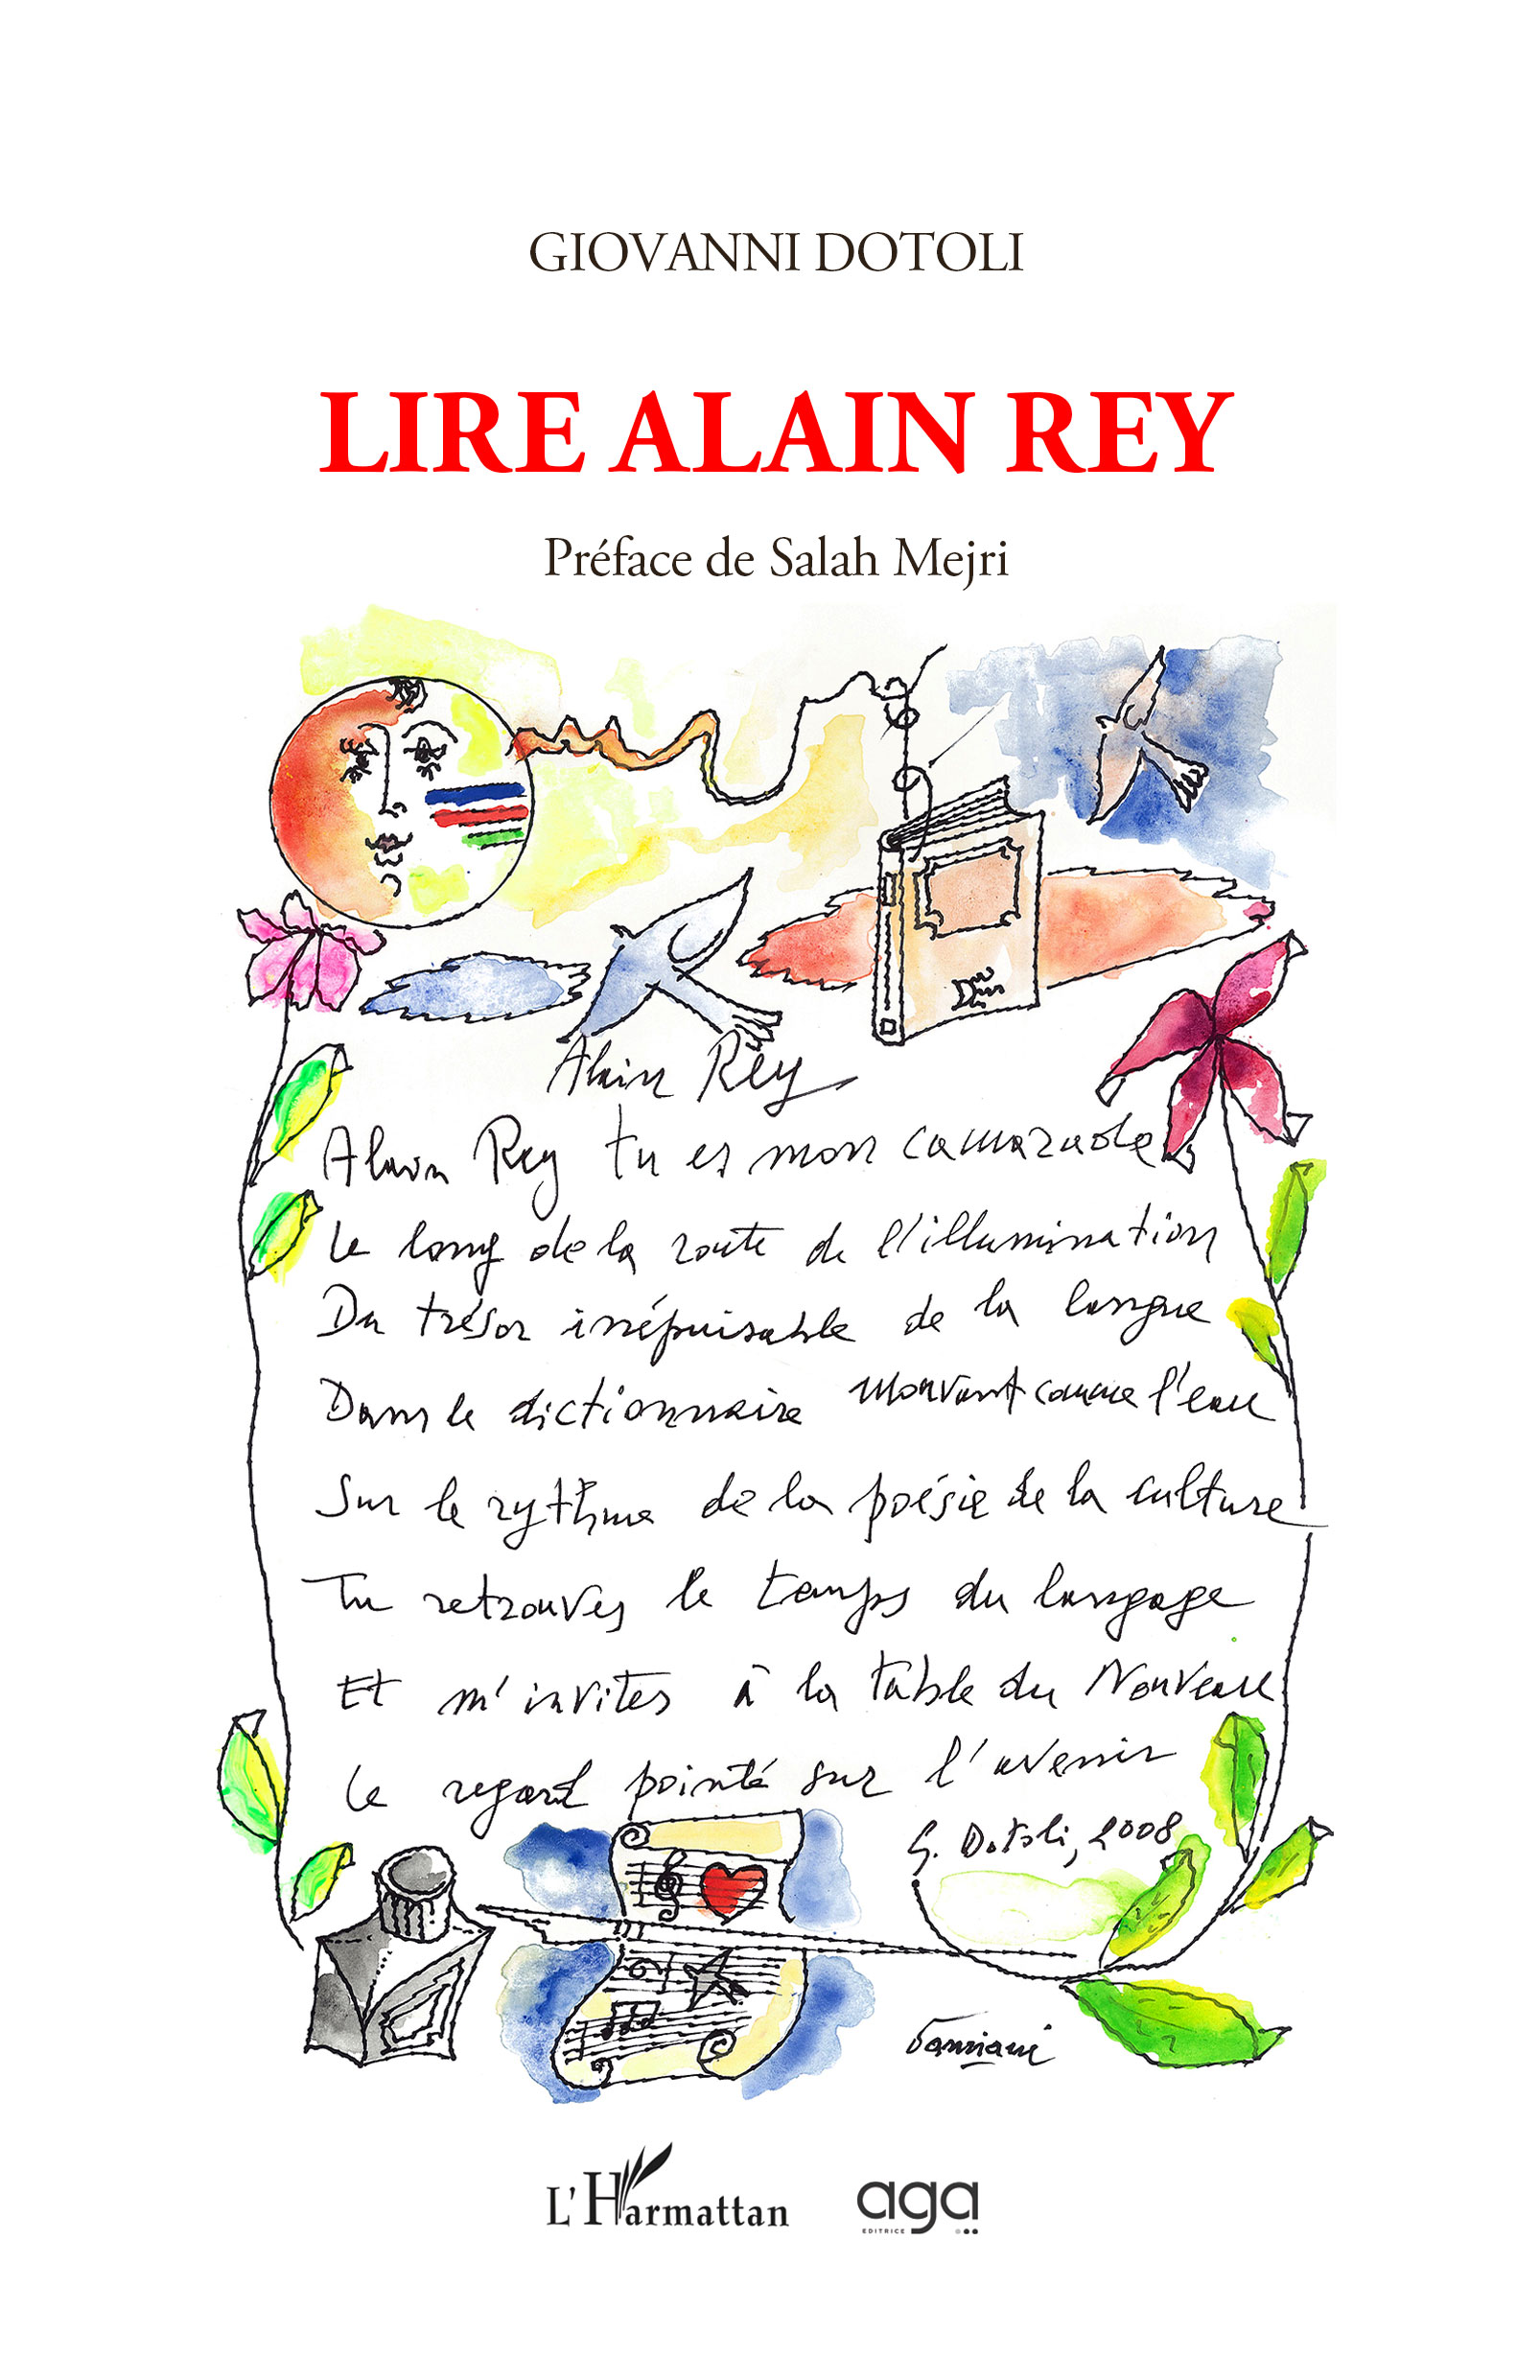 GIOVANNI DOTOLI
LIRE ALAIN REY
Préface de Salah Mejri
Alain Rey
Alain Rey tu es mon camarade
Le long de la route de l'illumination
Du trésor inépuisable de la langue
Dans le dictionnaire mouvant comme l'eau
Sur le rythme de la poésie de la culture
Tu retrouves le temps du langage
Et m'invites à la table du Nouveau
Le regard pointé sur l'avenir
G. Dotoli, 2008
Damiani
L'Harmattan
aga
EDITRICE